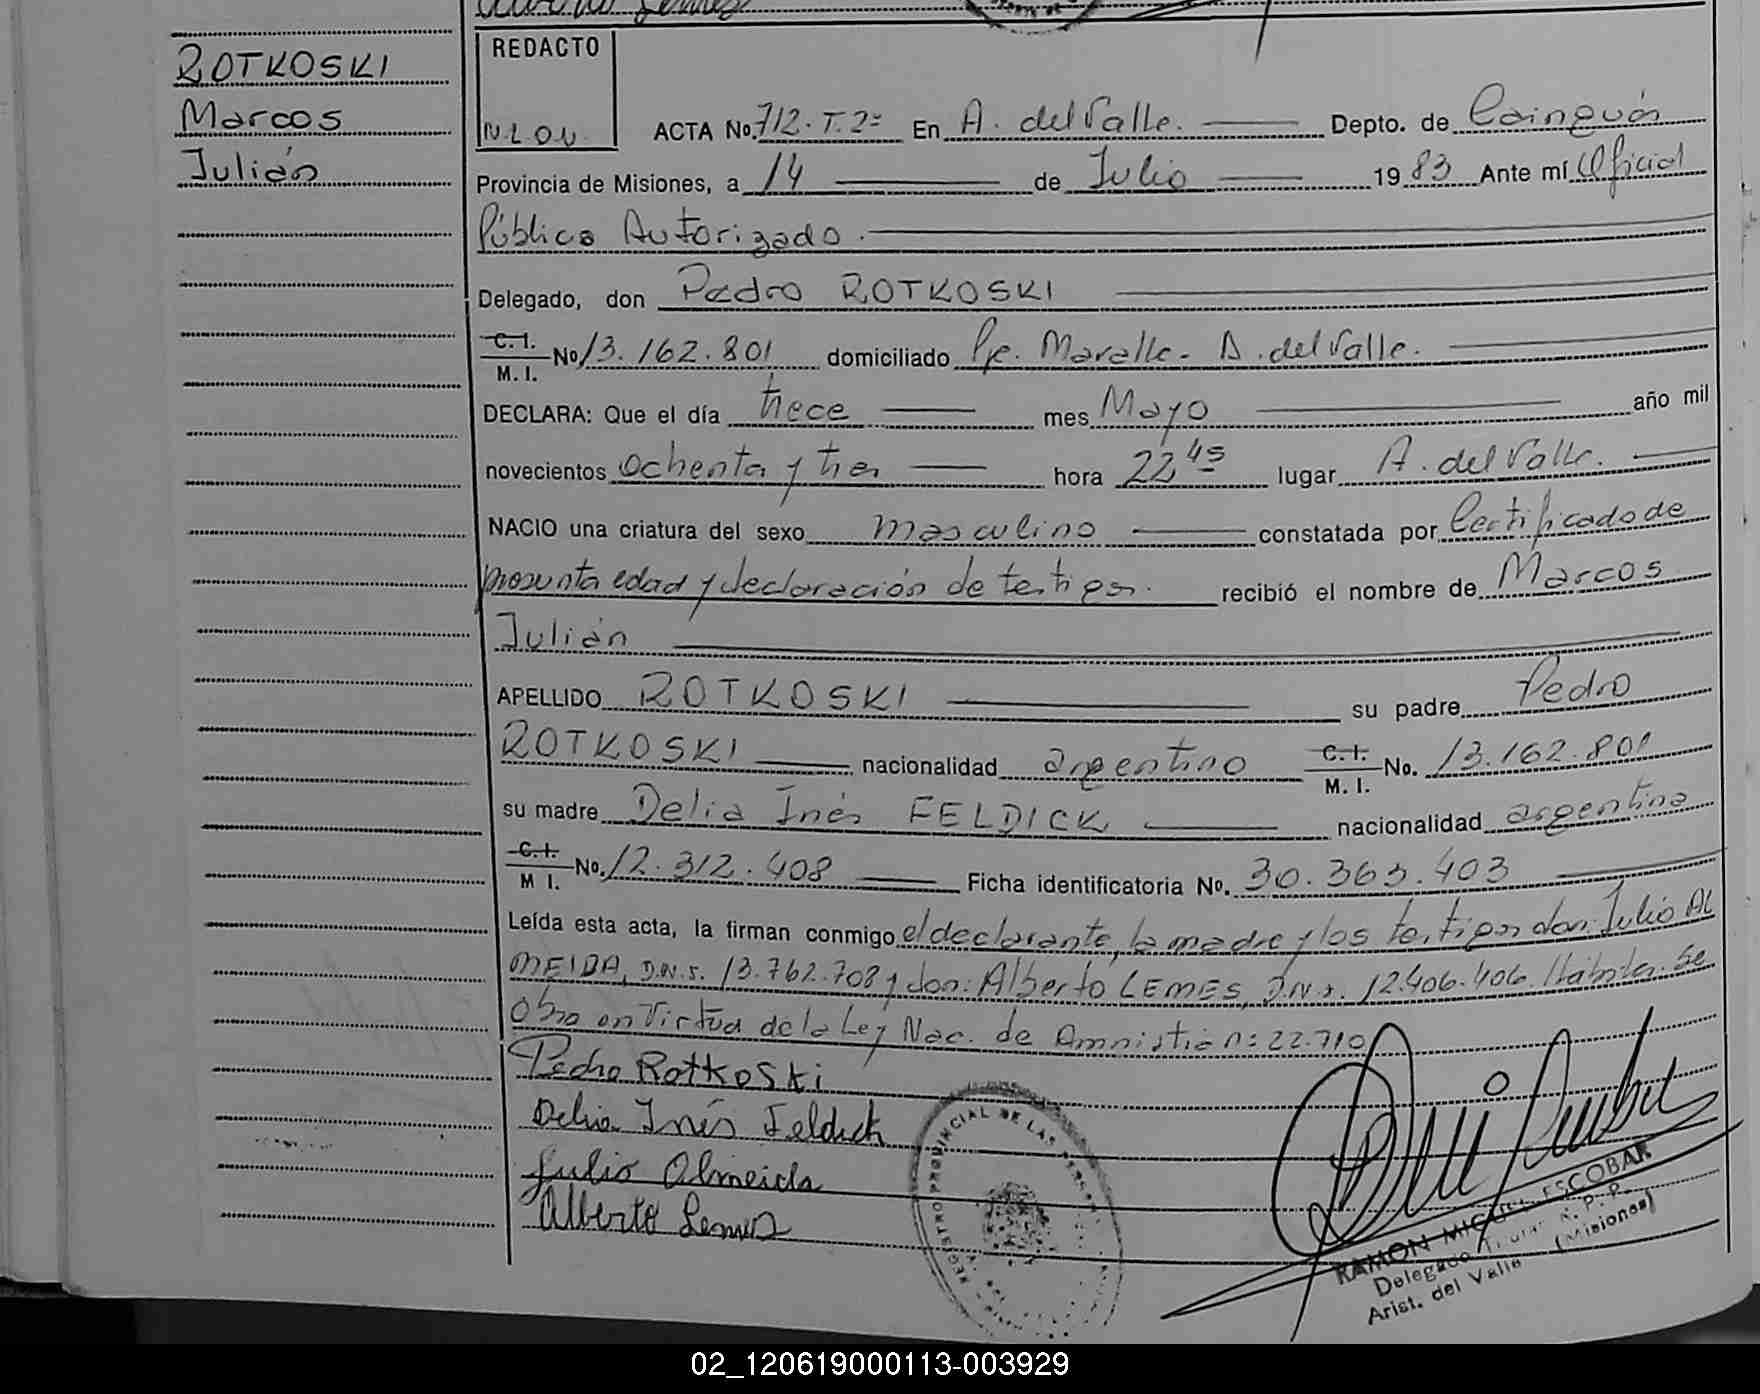 ROTKOSKI
Marcos
Julián
REDACTO
N.L.O.V.
ACTA No. 712.T.2º En A. del Valle. Depto. de Cainguás
Provincia de Misiones, a 14 de Julio 1983 Ante mí Oficial
Público Autorizado.
Delegado, don Pedro ROTKOSKI
C.I. M.I. No 13.162.801 domiciliado Pje. Maralle - A. del Valle.
DECLARA: Que el día trece mes Mayo año mil
novecientos ochenta y tres hora 22 45 lugar A. del Valle.
NACIO una criatura del sexo masculino constatada por Certificado de
presunta edad y declaración de testigos. recibió el nombre de Marcos
Julián
APELLIDO ROTKOSKI su padre Pedro
ROTKOSKI nacionalidad argentino C.I. M.I. No. 13.162.801
su madre Delia Inés FELDICK nacionalidad argentina
C.I. M I. No. 12.312.408 Ficha identificatoria No. 30.363.403
Leída esta acta, la firman conmigo el declarante, la madre y los testigos don: Julio AL
MEIDA, D.N.I. 13.762.708 y don: Alberto LEMES, D.N.I. 12.406.406. Hábiles. Se
Obra en Virtud de la Ley Nac. de Amnistía n: 22.710
Pedro Rotkoski
Delia Inés Feldick
Julio Almeida
Alberto Lemes
REGISTRO PROVINCIAL DE LAS PERSONAS
RAMON MIGUEL ESCOBAR
Delegado Titular R. P. P.
Arist. del Valle (Misiones)
02_120619000113-003929